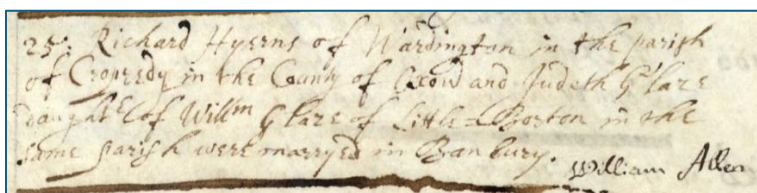 25: Richard Hyerns of Wardington in the parish
of Cropredy in the County of Oxon and Judeth Glaze
daught of Willm Glaze of Little-Borton in the
same parish were marryed in Banbury.
William Allen